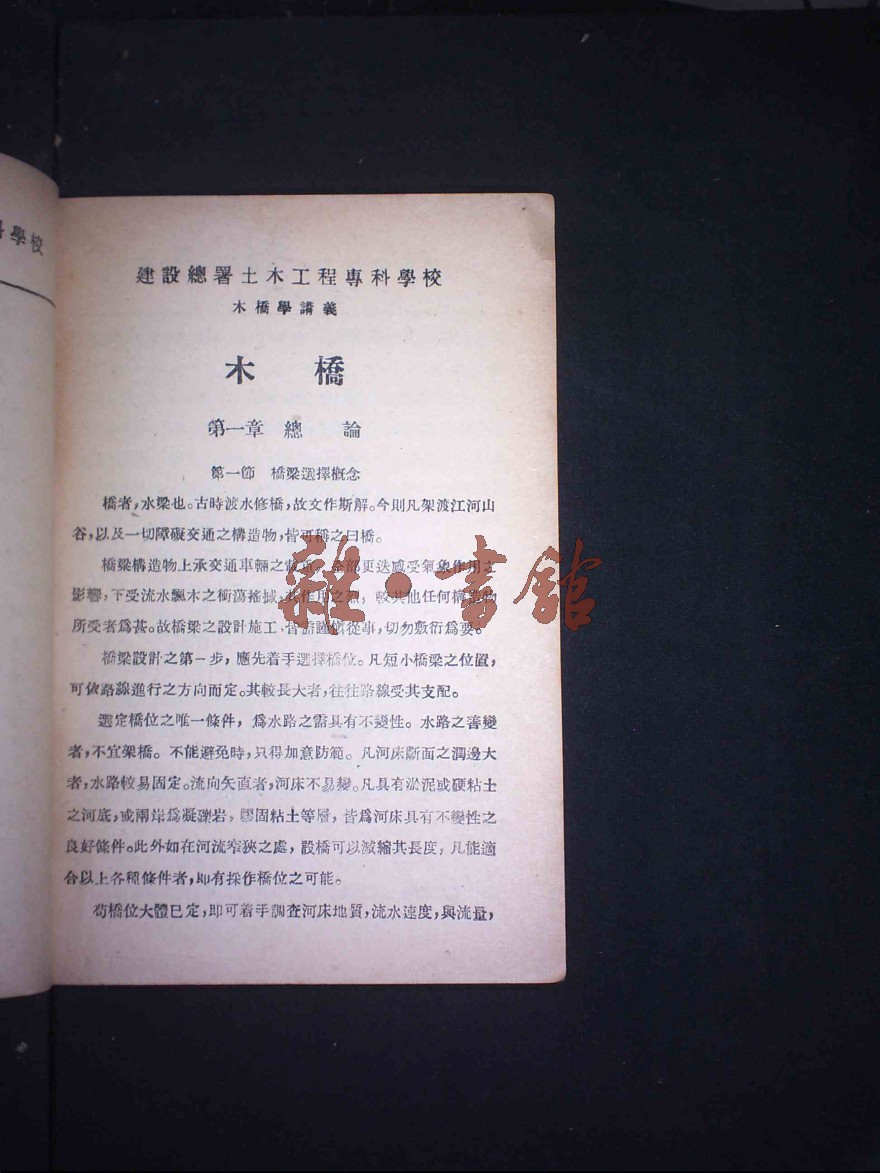 學校
建設總署土木工程專科學校
木橋學講義
木橋
第一章 總論
第一節 橋梁選擇概念
橋者,水梁也。古時渡水修橋,故文作斯解。今則凡架渡江河山
谷,以及一切障礙交通之構造物,皆可稱之曰橋。
橋梁構造物上承交通車輛之載重,全部更迭感受氣象作用之
影響,下受流水飄木之衝蕩搖撼,其作用之烈,較其他任何構造物
所受者爲甚。故橋梁之設計施工,皆需謹慎從事,切勿敷衍爲要。
橋梁設計之第一步,應先着手選擇橋位。凡短小橋梁之位置,
可依路線進行之方向而定。其較長大者,往往路線受其支配。
選定橋位之唯一條件,爲水路之需具有不變性。水路之善變
者,不宜架橋。不能避免時,只得加意防範。凡河床斷面之潤邊大
者,水路較易固定。流向矢直者,河床不易變。凡具有淤泥或硬粘土
之河底,或兩岸爲凝礫岩,膠固粘土等層,皆爲河床具有不變性之
良好條件。此外如在河流窄狹之處,設橋可以減縮其長度,凡能適
合以上各種條件者,即有採作橋位之可能。
苟橋位大體已定,即可着手調查河床地質,流水速度,與流量,
雜·書館